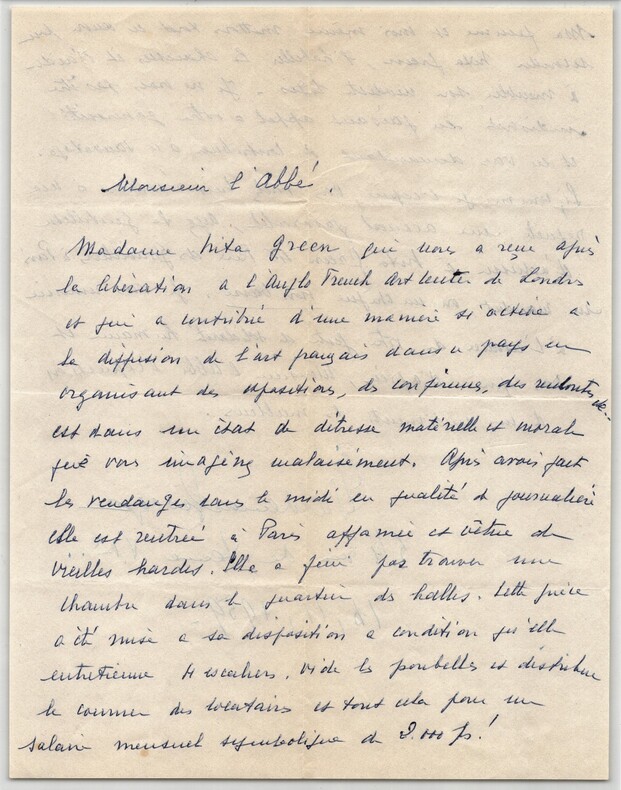 Monsieur l'Abbé,
Madame Nita Green qui nous a reçu après
la libération a l'Anglo French Art Center de Londres
et qui a contribué d'une manière si active à
la diffusion de l'art français dans ce pays en
organisant des expositions, des conférences, des
est dans un état de détresse matérielle et morale
que vous imaginez malaisément. Après avoir fait
les vendanges dans le midi en qualité de journalière
elle est rentrée à Paris affamée et vêtue de
vieilles hardes. Elle a fini par trouver une
chambre dans le quartier des halles. Cette pièce
a été mise a sa disposition a condition qu'elle
entretienne 4 escaliers, vide les poubelles et distribue
le courrier des locataires et tout cela pour un
salaire mensuel symbolique de 2.000 fs!